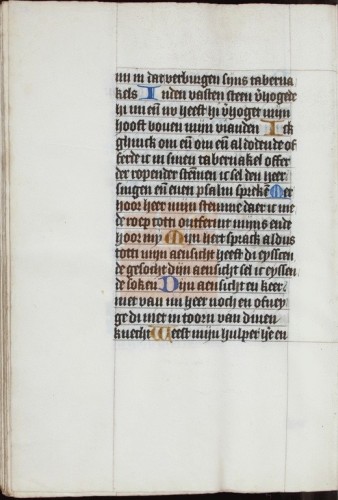 mi in dat verburgen sijns taberna
kels In den vasten steen v̄hogede
hi mi en̄ nv heeft hi v̄hoget mijn
hooft bouen mijn vianden Ick
ghinck om en̄ om en̄ al dodende of
ferde ic in sinen tabernakel offer
der ropender stēmen ic sel den heer
singen en̄ enen psalm sprekē Ver
hoor heer mijn stemme daer ic me
de roep totti ontferme mijns ende
hoor my Mijn hert sprack aldus
totti mijn aensicht heeft di eysscen
de gesocht dijn aensicht sel ic eyssen
de soken Dijn aensicht en keer
niet van mi heer noch en ofney
ge di niet in toorn van dinen
knecht Weest mijn hulper h̄e en